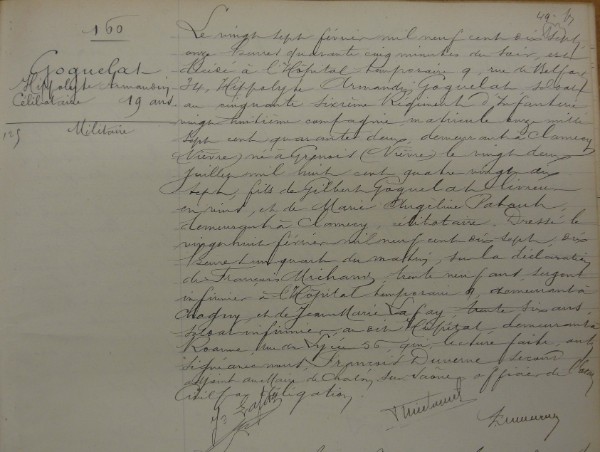 160
Goguelat
Hippolyte Armandin
Célibataire 19 ans
Militaire
Le vingt sept février mil neuf cent dix sept
onze heures quarante cinq minutes du soir, est
décédé à l'Hôpital temporaire 9 rue de Belfort
34, Hippolyte Armandin Goguelat soldat
au cinquante sixième Régiment d'Infanterie
vingt huitième compagnie, matricule onze mille
sept cent quarante deux, demeurant à Clamecy
(Nièvre) né à Grenois (Nièvre) le vingt deux
juillet mil huit cent quatre vingt dix
sept, fils de Gilbert Goguelat livreur
en vins, et de Marie Angeline
demeurant à Clamecy, célibataire. Dressé le
vingt huit février mil neuf cent dix sept, dix
heures un quart du matin, sur la déclaration
de François Michaud, trente neuf ans, sergent
infirmier à l'Hôpital temporaire 9, demeurant à
Chagny, et de Jean Marie Lafay, trente six ans,
soldat infirmier, au dit Hôpital, demeurant à
Roanne, rue du Lycée 36, qui, lecture faite, ont
signé avec nous, François Duverne, second
adjoint au Maire de Chalon sur Saône, officier de l'Etat
Civil par délégation.